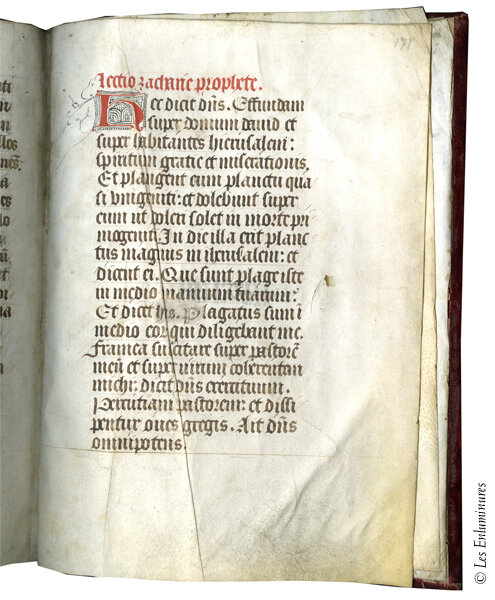 Lectio zacharie prophete.
Hec dicit dñs. Effundam
super domum dauid et
super habitantes hierusalem:
spiritum gratie et miserationis.
Et plangent eum planctu qua
si vnigeniti: et dolebunt super
eum ut doleri solet in morte pri
mogeniti. In die illa erit planc
tus magnus in iherusalem: et
dicent ei. Que sunt plage iste
in medio manuum tuarum?
Et dicet his. Plagatus sum i
medio eor qui diligebant me.
Framea suscitare super pastorē
meū et super uirum coherentem
michi: dicit dñs exercituum.
Percutiam pastorem: et dissi
pentur oues gregis. Ait dñs
omnipotens.
© Les Enluminures